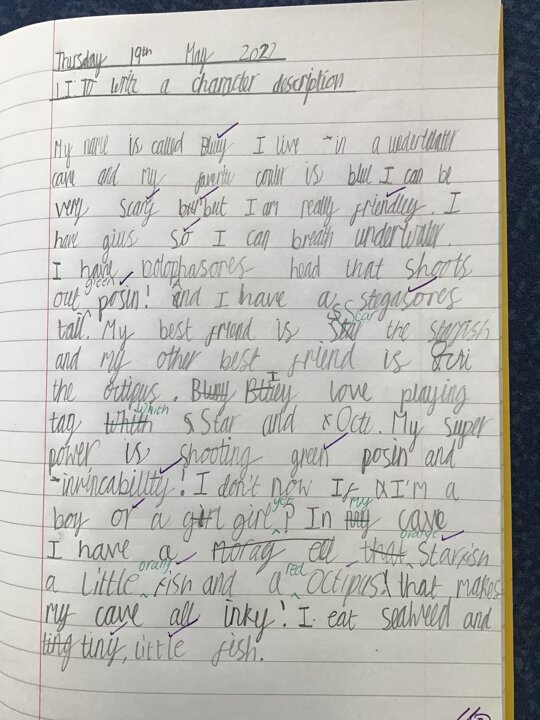 Thursday 19th May 2022
LI: To write a character description
My name is called Bluey I live in a underwater
cave and my favorite conlor is blue I can be
very scary but but I am really friendley. I
have gills so I can breath underwater.
I have bolophasores head that shoots
out green posin! and I have a stogasores
tail. My best friend is Star Star the starfish
and my other best friend is Octi
the octipus. Bluey They I love playing
tag Whith which Star and Octi. My super
power is shooting green posin and
invincability! I don't now If I'M a
boy or a girl girl yet? In my my cave
I have a morag ell that orange Starfish
a Little orang fish and a red Octipus! that makes
my cave all inky! I eat seaweed and
ting tiny, little fish.